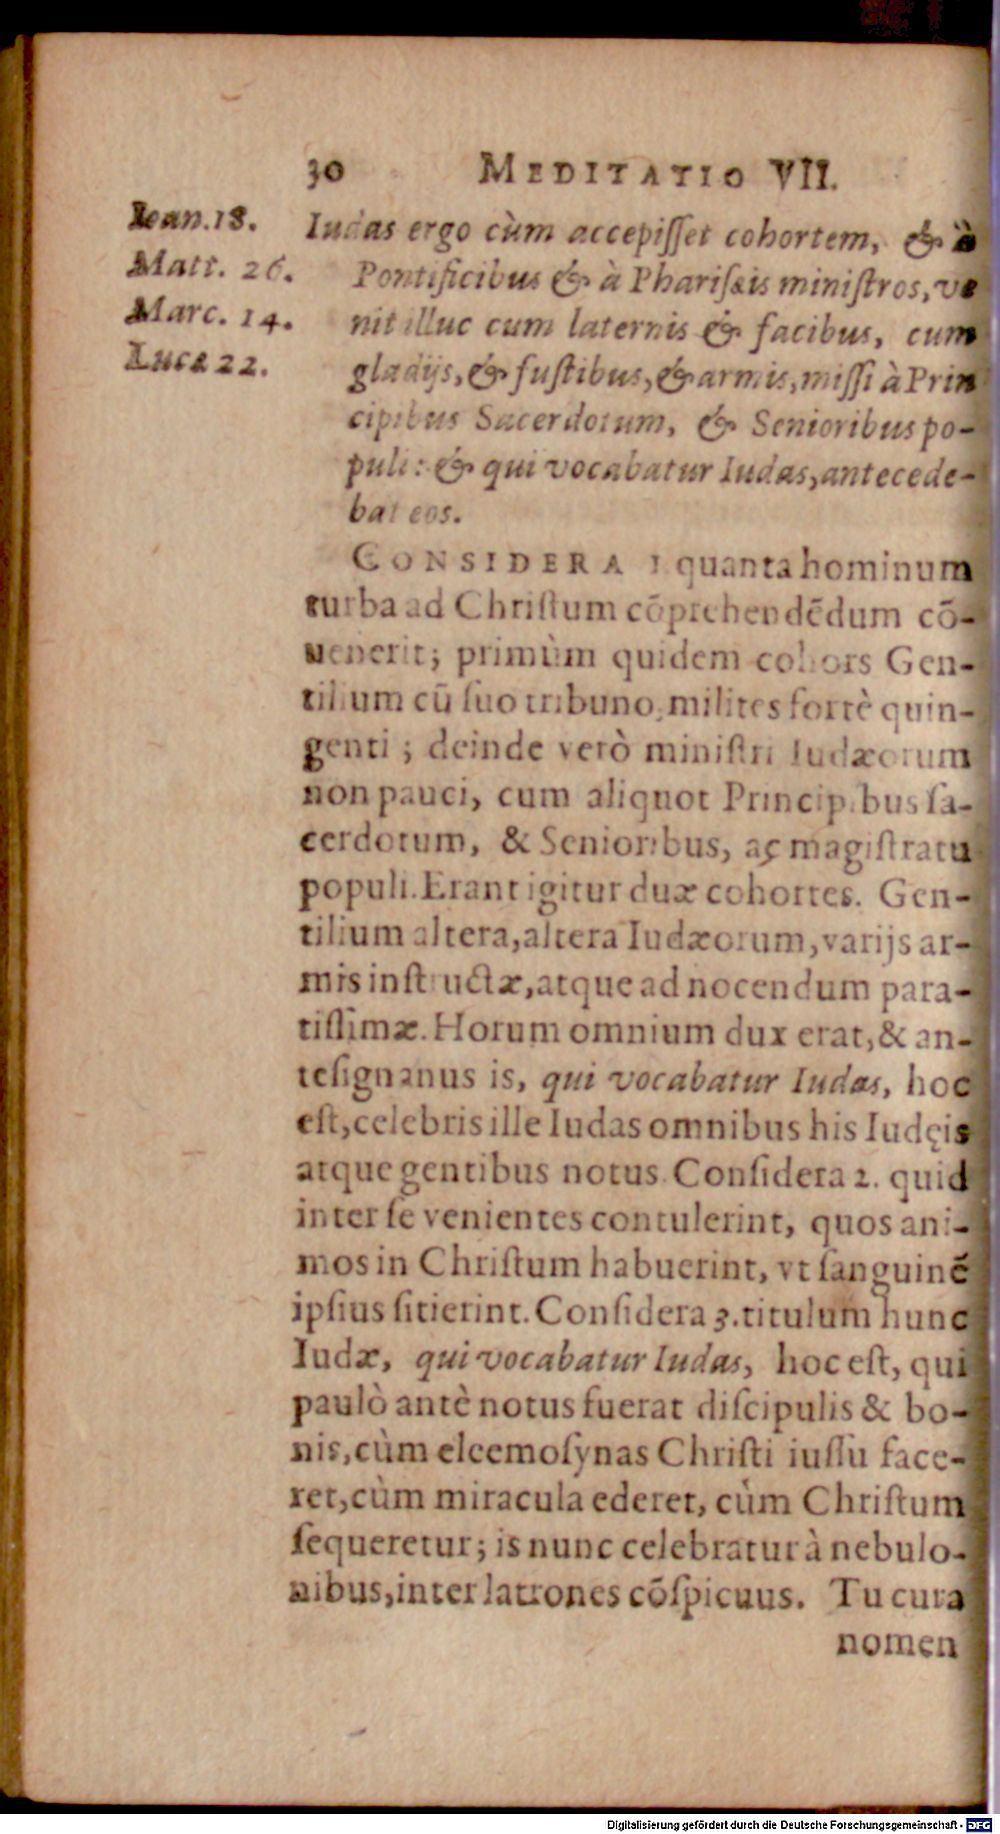 30 MEDITATIO VII.
Ioan.18.
Matt. 26.
Marc. 14.
Lucæ 22.
Iudas ergo cùm accepiſſet cohortem, & à
Pontificibus & à Phariſæis miniſtros, ve
nit illuc cum laternis & facibus, cum
gladijs, & fuſtibus, & armis, miſſi à Prin
cipibus Sacerdotum, & Senioribus po-
puli: & qui vocabatur Iudas, antecede-
bat eos.
CONSIDERA 1 quanta hominum
turba ad Chriſtum cōprehendēdum cō-
uenerit; primùm quidem cohors Gen-
tilium cū ſuo tribuno, milites fortè quin-
genti; deinde verò miniſtri Iudæorum
non pauci, cum aliquot Principibus ſa-
cerdotum, & Senioribus, aç magiſtratu
populi. Erant igitur duæ cohortes. Gen-
tilium altera, altera Iudæorum, varijs ar-
mis inſtructæ, atque ad nocendum para-
tiſſimæ. Horum omnium dux erat, & an-
teſignanus is, qui vocabatur Iudas, hoc
eſt, celebris ille Iudas omnibus his Iudęis
atque gentibus notus. Conſidera 2. quid
inter ſe venientes contulerint, quos ani-
mos in Chriſtum habuerint, vt ſanguinē
ipſius ſitierint. Conſidera 3. titulum hunc
Iudæ, qui vocabatur Iudas, hoc eſt, qui
paulò antè notus fuerat diſcipulis & bo-
nis, cùm eleemoſynas Chriſti iuſſu face-
ret, cùm miracula ederet, cùm Chriſtum
ſequeretur; is nunc celebratur à nebulo-
nibus, inter latrones cōſpicuus. Tu cura
nomen
Digitalisierung gefördert durch die Deutsche Forschungsgemeinschaft - DFG